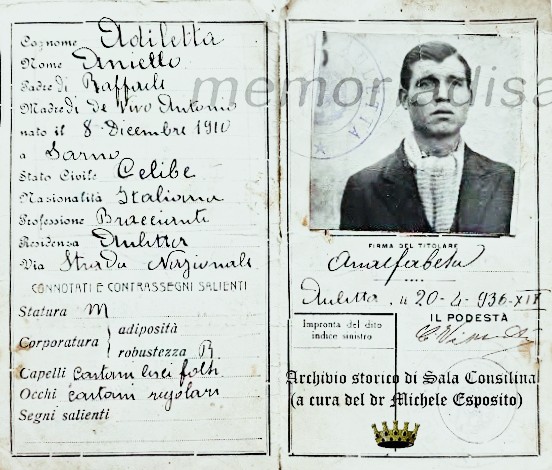 Cognome Adiletta
Nome Aniello
Padre Di Raffaele
Madre Di De Vivo Antonia
nato il 8 Dicembre 1910
a Sarno
Stato Civile Celibe
Nasionalità Italiana
Professione Bracciante
Residenza Auletta
Via Strada Nazionale
CONNOTATI E CONTRASSEGNI SALIENTI
Statura M
Corporatura { adiposità
robustezza R
Capelli castani lisci folti
Occhi castani regolari
Segni salienti
memoriadisa
FIRMA DEL TITOLARE
Analfabeta
Auletta. il 20-4-936-XIV
IL PODESTÀ
Impronta del dito
indice sinistro
Archivio storico di Sala Consilina
(a cura del dr Michele Esposito)